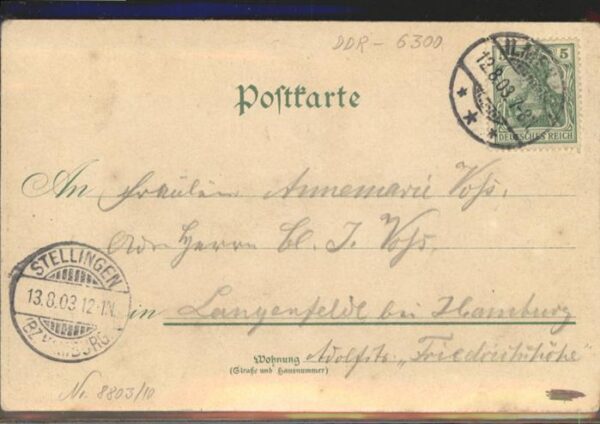 DDR - 6300
ILMEN
12.8.03. 7-8
5
DEUTSCHES REICH
Postkarte
An Fräulein Annemarie Voß.
Adr. Herrn Cl. J. Voß.
STELLINGEN
13.8.03. 12-1N.
(BZ. HAMBURG)
in Langenfelde bei Hamburg
Wohnung Adolfstr. „Friedrichshöhe"
(Straße und Hausnummer)
Nr. 8803/10